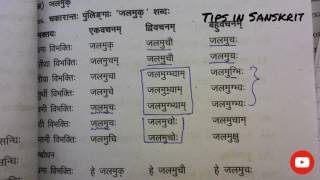 Tips in Sanskrit
जलमुक्
चकारान्तः पुंलिङ्गः 'जलमुक्' शब्दः
एकवचनम् द्विवचनम् बहुवचनम्
विभक्तिः जलमुक् जलमुचौ जलमुचः
विभक्तिः जलमुचम् जलमुचौ जलमुचः
विभक्तिः जलमुचा जलमुग्भ्याम् जलमुग्भिः
विभक्तिः जलमुचे जलमुग्भ्याम् जलमुग्भ्यः
विभक्तिः जलमुचः जलमुग्भ्याम् जलमुग्भ्यः
विभक्तिः जलमुचः जलमुचोः जलमुचाम्
विभक्तिः जलमुचि जलमुचोः जलमुक्षु
विभक्तिः हे जलमुक् हे जलमुचौ हे जलमुचः